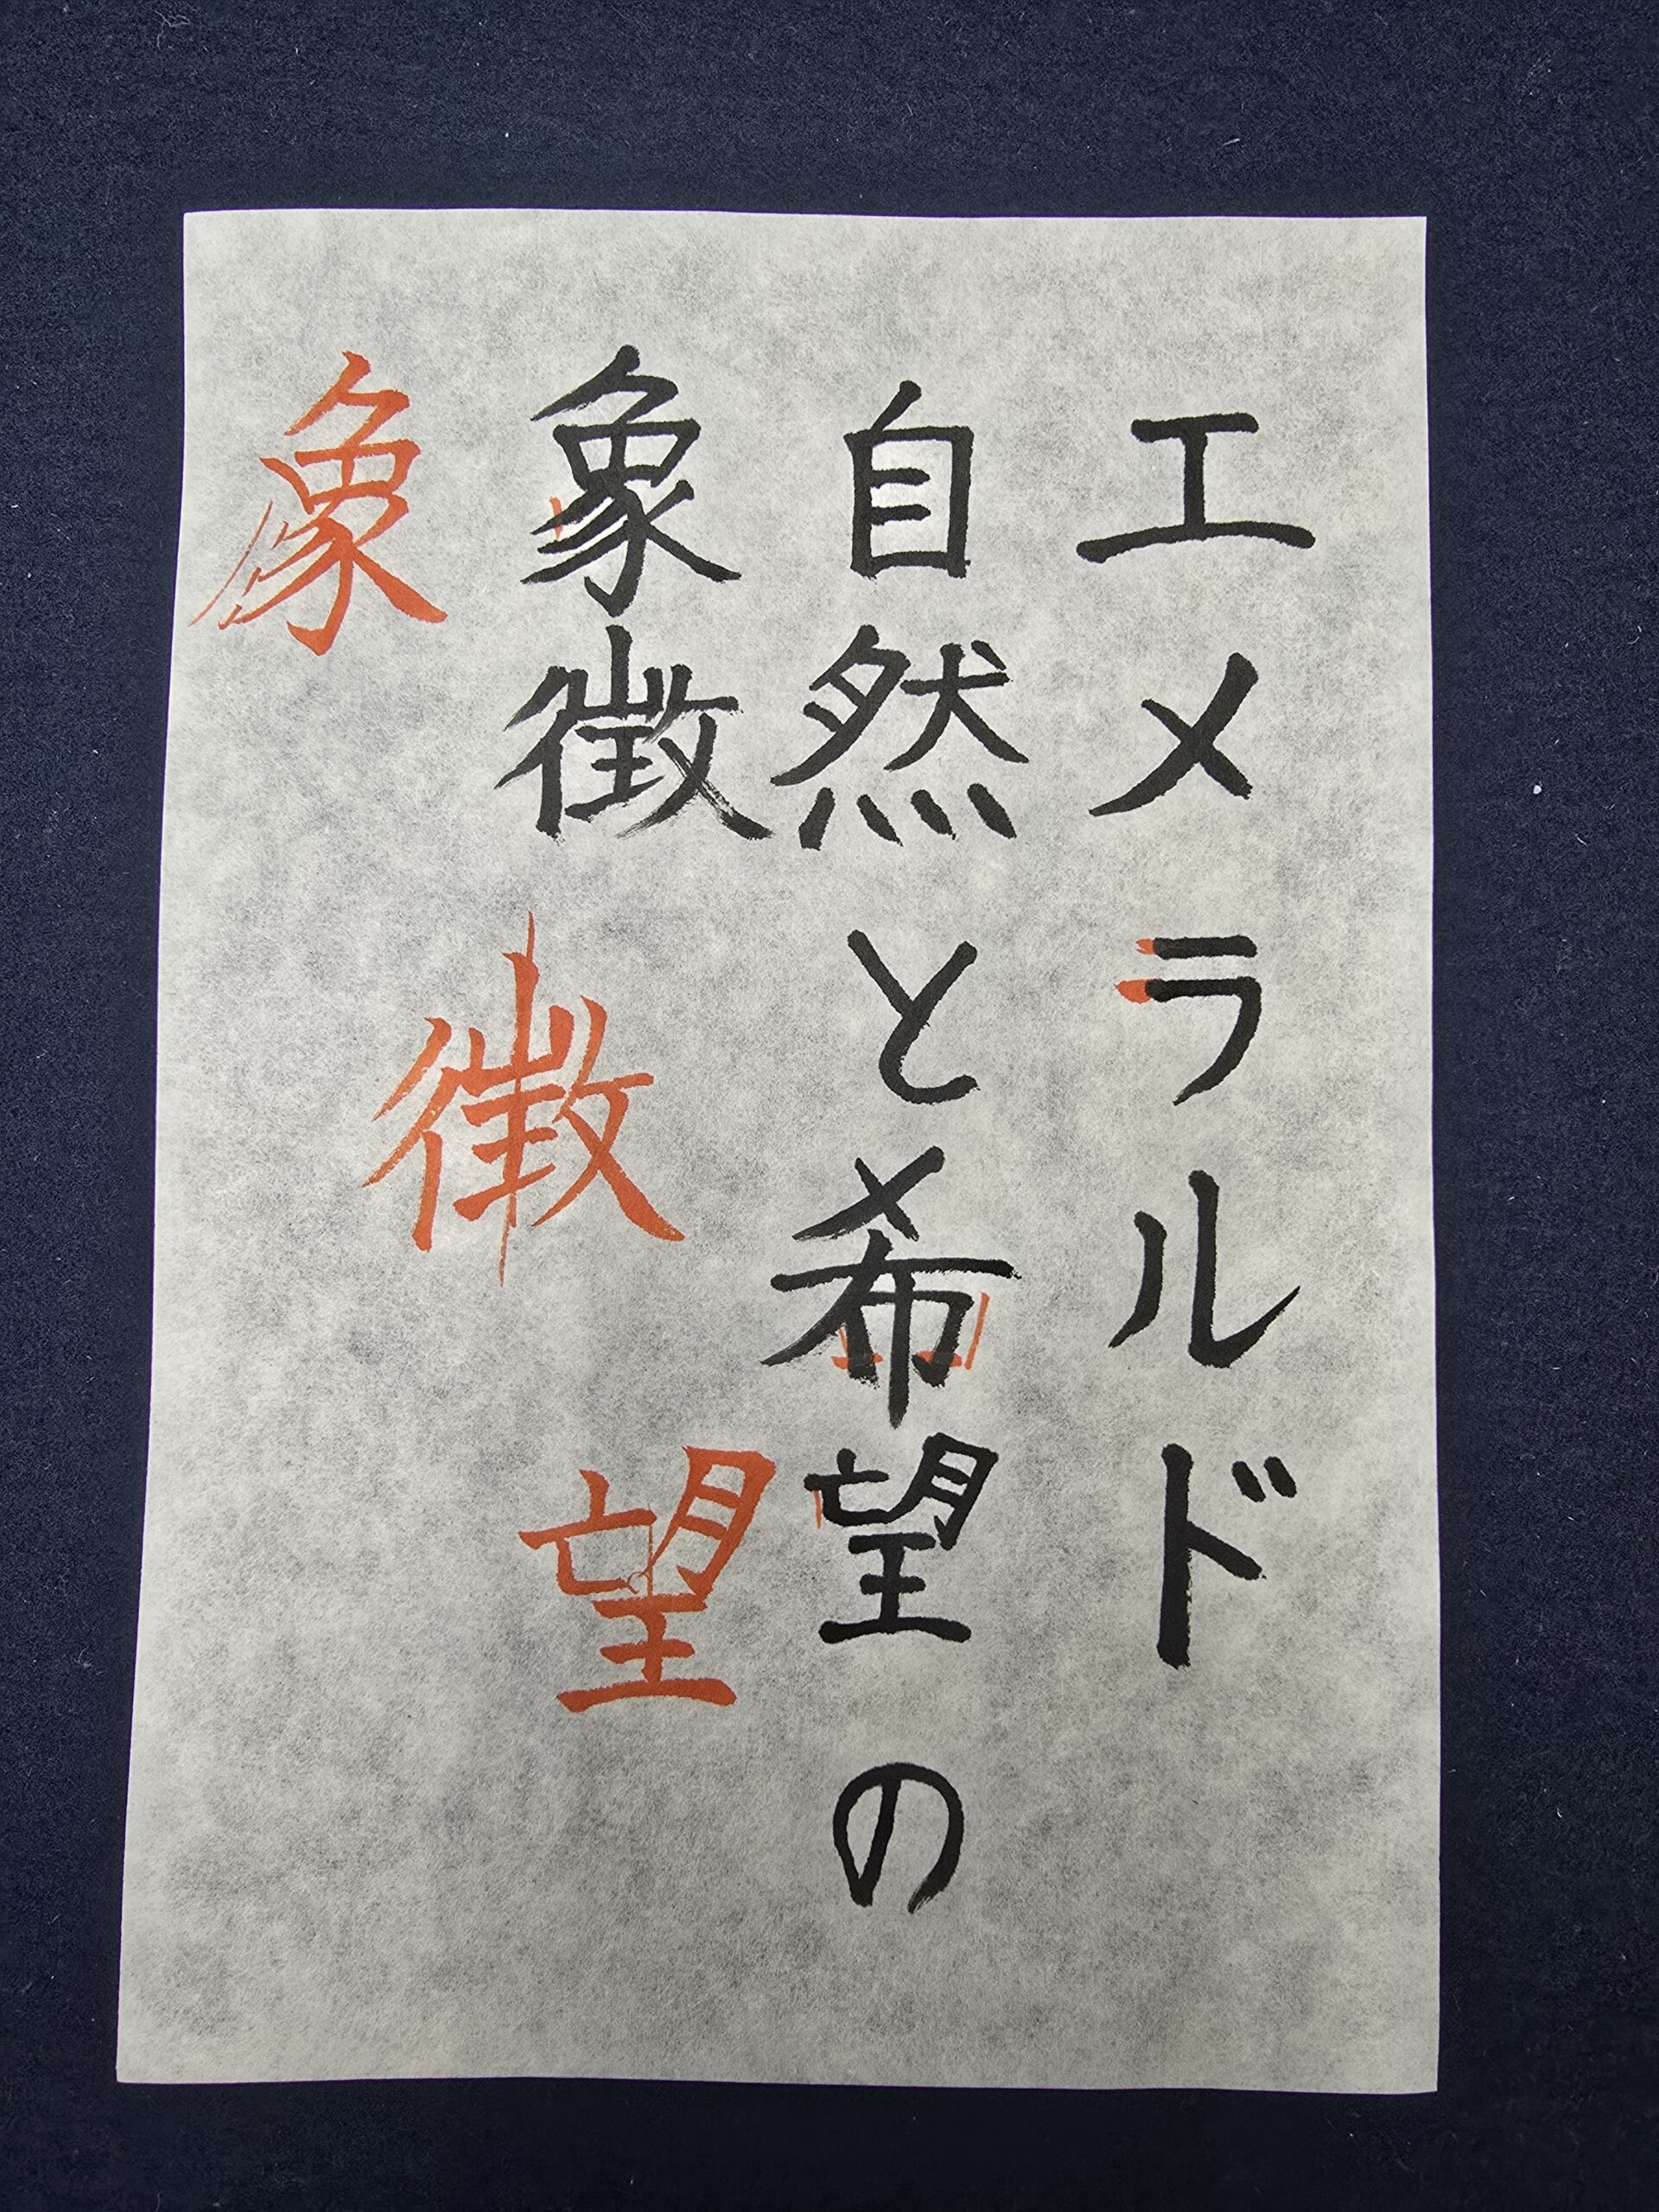 エメラルド
自然と希望の
象徴
望
徴
象